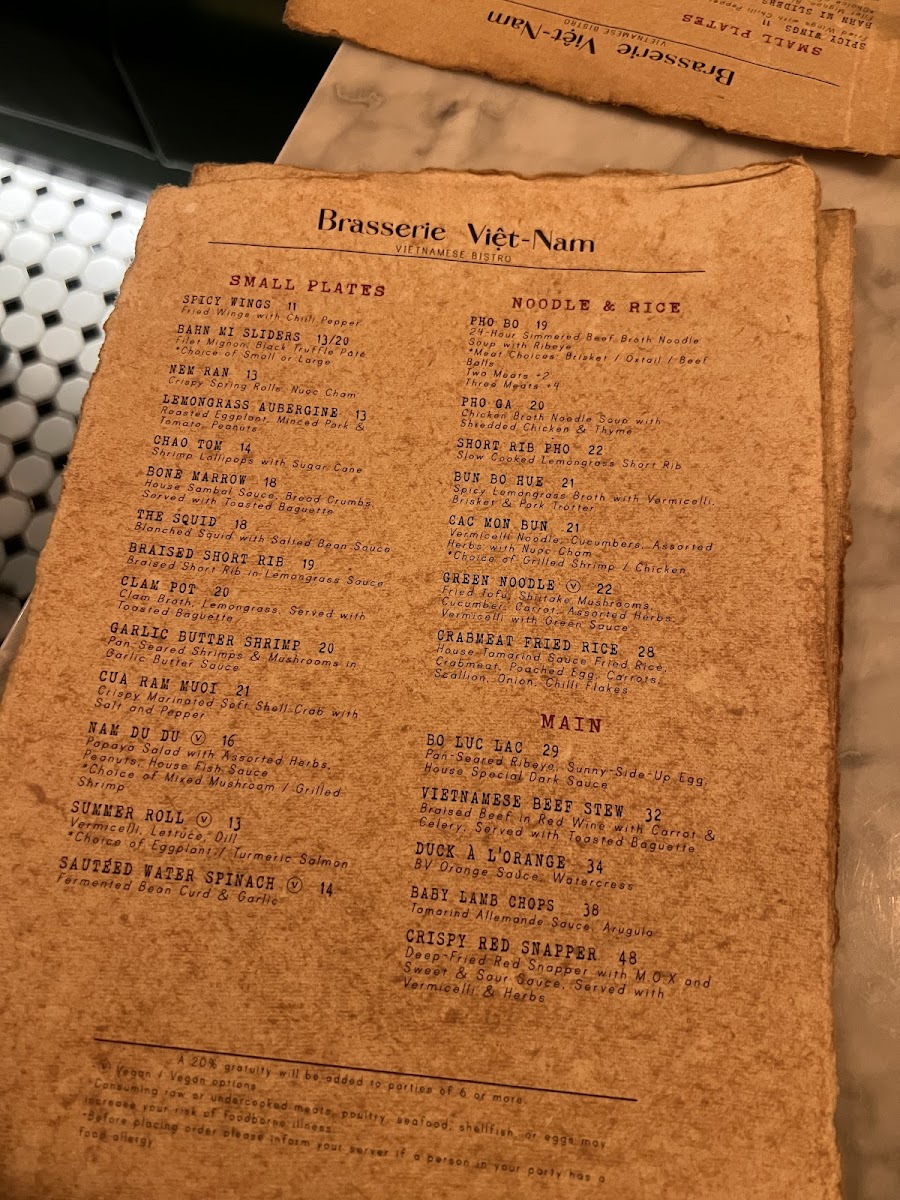 Brasserie Việt-Nam
VIETNAMESE BISTRO
SMALL PLATES
SPICY WINGS 11
Fried Wings with Chili Pepper
BAHN MI SLIDERS 13/20
Filet Mignon, Black Truffle Pate
*Choice of Small or Large
NEM RAN 13
Crispy Spring Rolls, Nuoc Cham
LEMONGRASS AUBERGINE 13
Roasted Eggplant, Minced Pork &
Tomato, Peanuts
CHAO TOM 14
Shrimp Lollipops with Sugar Cane
BONE MARROW 18
House Sambal Sauce, Bread Crumbs,
Served with Toasted Baguette
THE SQUID 18
Blanched Squid with Salted Bean Sauce
BRAISED SHORT RIB 19
Braised Short Rib in Lemongrass Sauce
CLAM POT 20
Clam Broth, Lemongrass, Served with
Toasted Baguette
GARLIC BUTTER SHRIMP 20
Pan-Seared Shrimps & Mushrooms in
Garlic Butter Sauce
CUA RAM MUOI 21
Crispy Marinated Soft Shell Crab with
Salt and Pepper
NAM DU DU Ⓥ 16
Papaya Salad with Assorted Herbs,
Peanuts, House Fish Sauce
*Choice of Mixed Mushroom / Grilled
Shrimp
SUMMER ROLL Ⓥ 13
Vermicelli, Lettuce, Dill
*Choice of Eggplant / Turmeric Salmon
SAUTÉED WATER SPINACH Ⓥ 14
Fermented Bean Curd & Garlic
NOODLE & RICE
PHO BO 19
24-Hour Simmered Beef Broth Noodle
Soup with Ribeye
*Meat Choices: Brisket / Oxtail / Beef
Balls
Two Meats +2
Three Meats +4
PHO GA 20
Chicken Broth Noodle Soup with
Shredded Chicken & Thyme
SHORT RIB PHO 22
Slow Cooked Lemongrass Short Rib
BUN BO HUE 21
Spicy Lemongrass Broth with Vermicelli,
Brisket & Pork Trotter
CAC MON BUN 21
Vermicelli Noodle, Cucumbers, Assorted
Herbs with Nuoc Cham
*Choice of Grilled Shrimp / Chicken
GREEN NOODLE Ⓥ 22
Fried Tofu, Shiitake Mushrooms,
Cucumber, Carrot, Assorted Herbs,
Vermicelli with Green Sauce
CRABMEAT FRIED RICE 28
House Tamarind Sauce Fried Rice,
Crabmeat, Poached Egg, Carrots,
Scallion, Onion, Chilli Flakes
MAIN
BO LUC LAC 29
Pan-Seared Ribeye, Sunny-Side-Up Egg,
House Special Dark Sauce
VIETNAMESE BEEF STEW 32
Braised Beef in Red Wine with Carrot &
Celery, Served with Toasted Baguette
DUCK À L'ORANGE 34
BV Orange Sauce, Watercress
BABY LAMB CHOPS 38
Tamarind Allemande Sauce, Arugula
CRISPY RED SNAPPER 48
Deep-Fried Red Snapper with M.O.X and
Sweet & Sour Sauce, Served with
Vermicelli & Herbs
A 20% gratuity will be added to parties of 6 or more.
Ⓥ Vegan / Vegan options
*Consuming raw or undercooked meats, poultry, seafood, shellfish, or eggs may
increase your risk of foodborne illness.
*Before placing order please inform your server if a person in your party has a
food allergy
Brasserie Việt-Nam
VIETNAMESE BISTRO
SMALL PLATES
SPICY WINGS 11
Fried Wings with Chili Pepper
BAHN MI SLIDERS